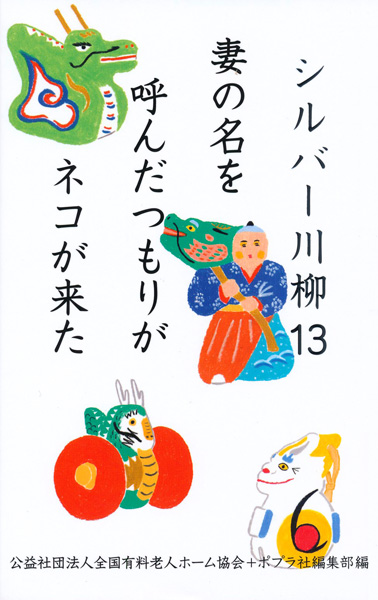 シルバー川柳13
妻の名を
呼んだつもりが
ネコが来た
公益社団法人全国有料老人ホーム協会+ポプラ社編集部編